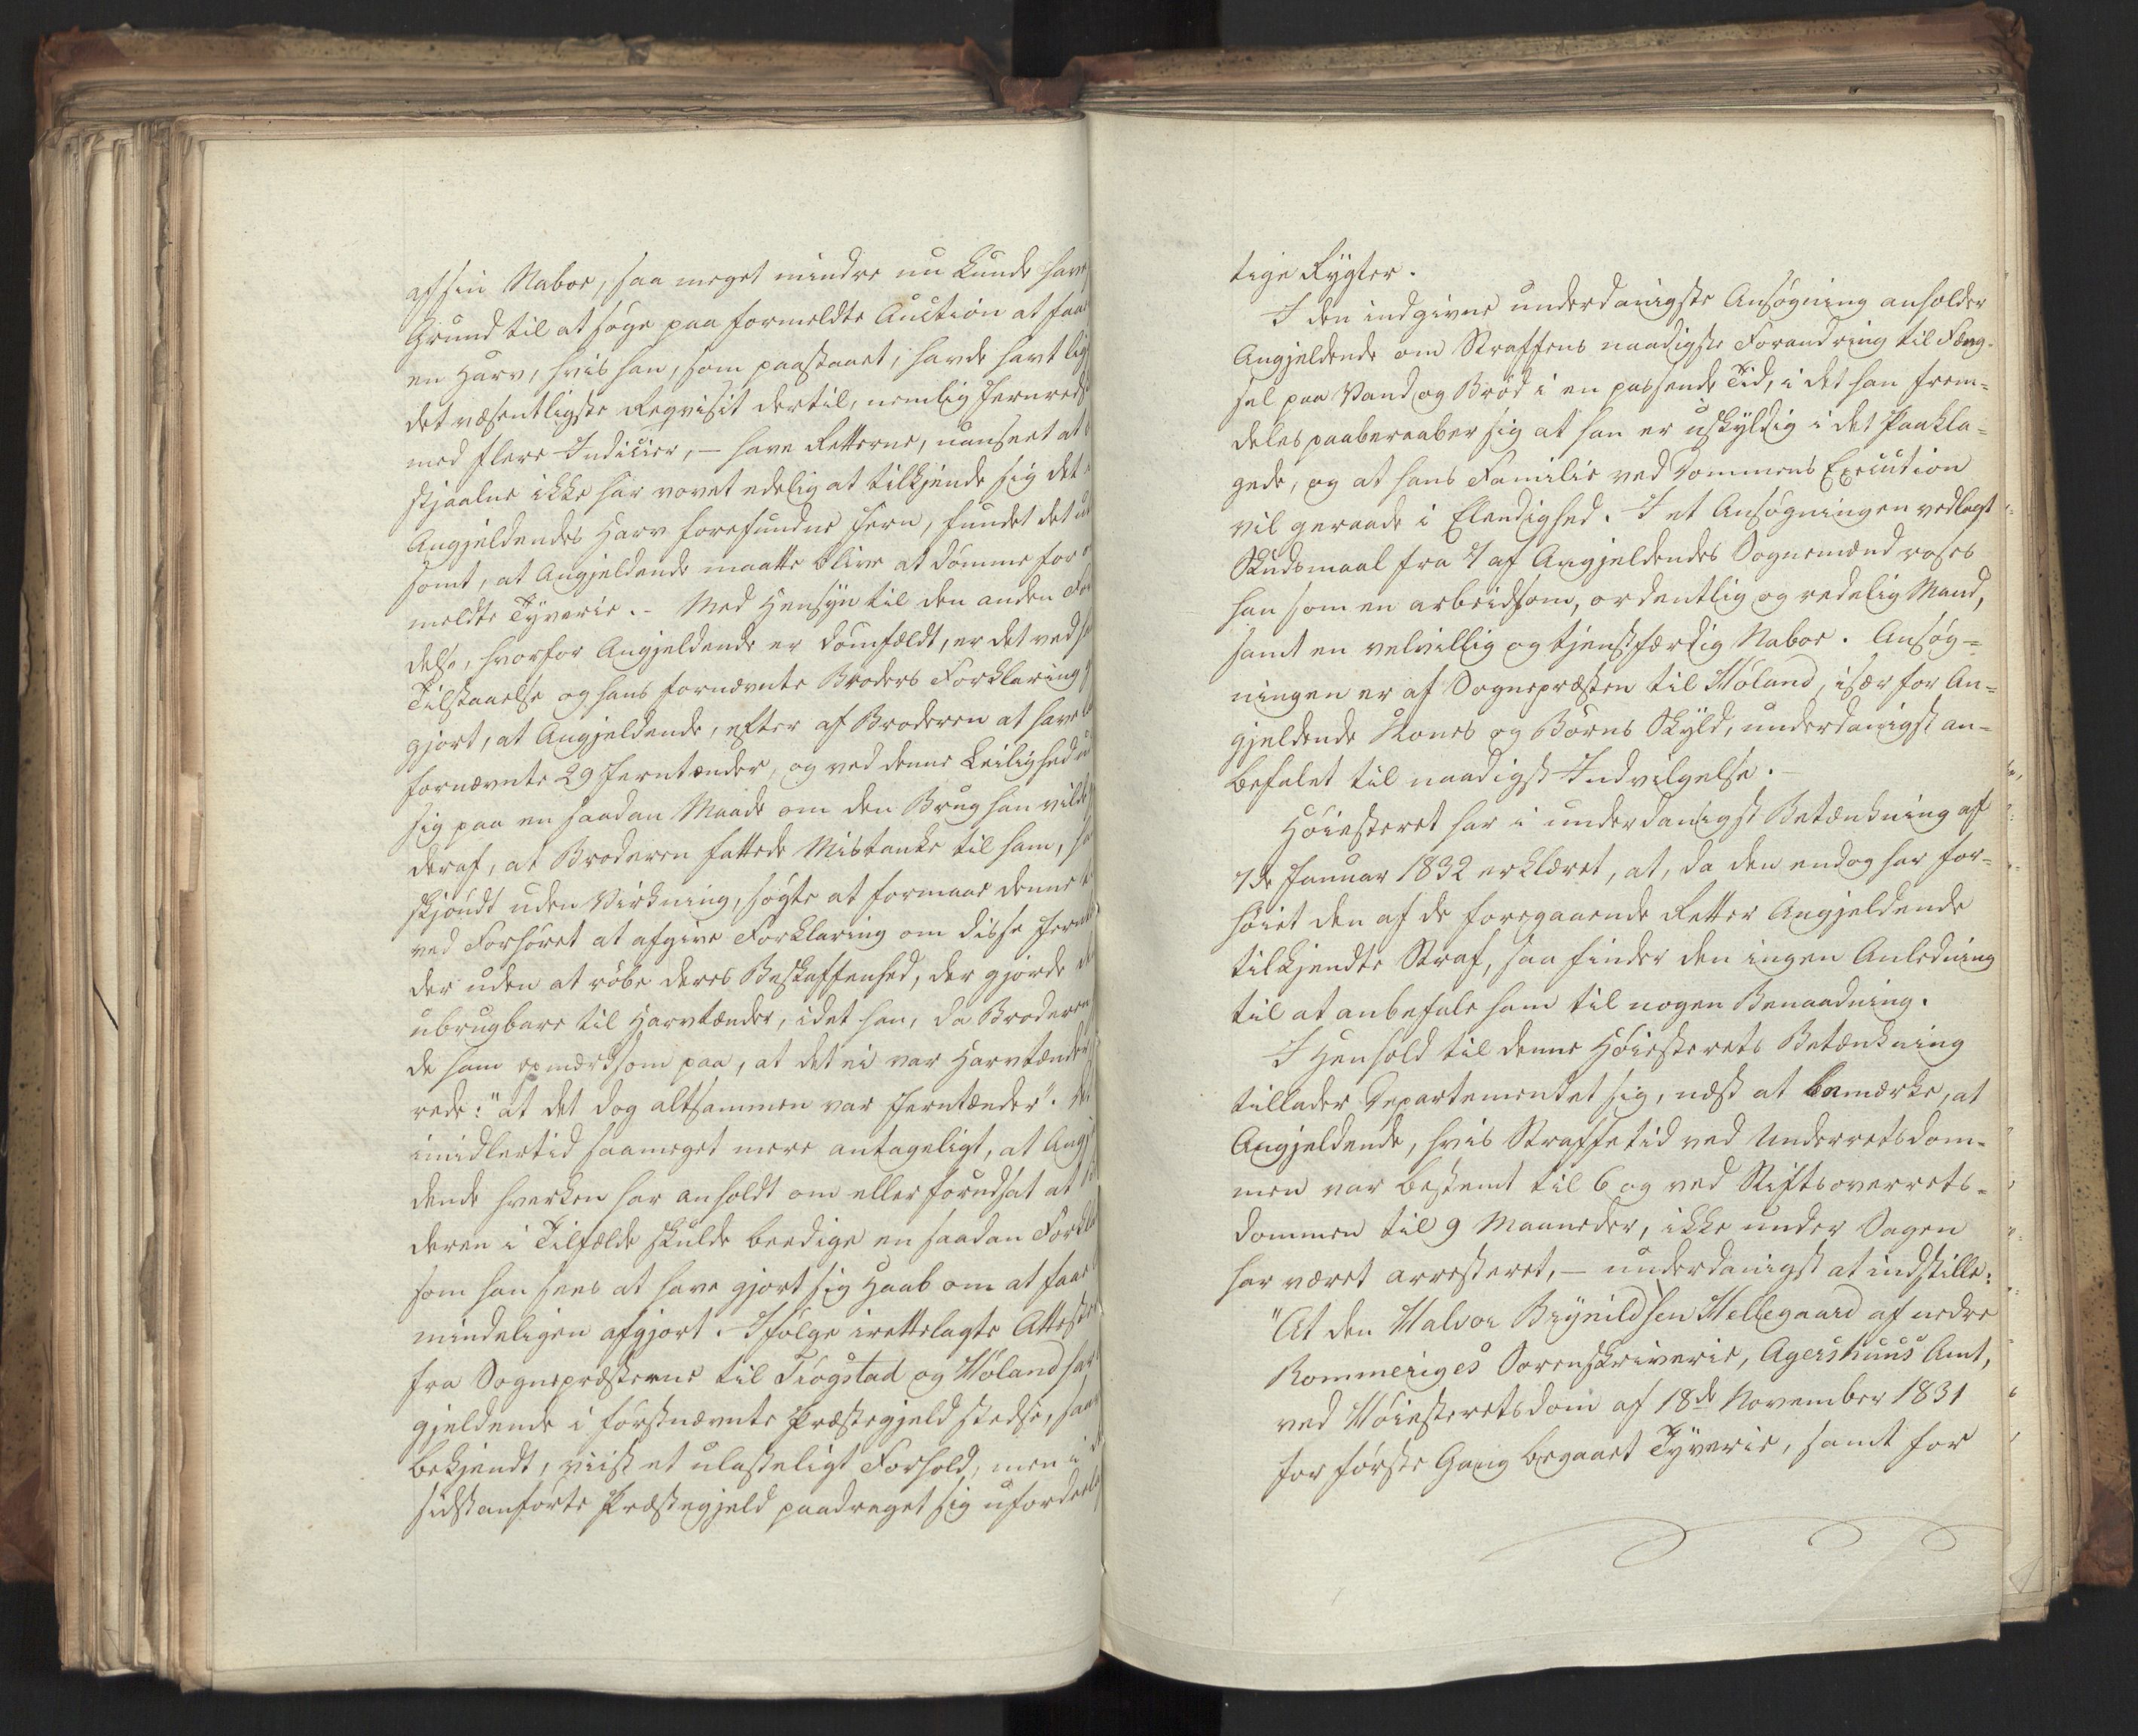 af sin Naboe, saa meget mindre nu kunde have
Grund til at søge paa formeldte Auction at faae
en Harv, hvis han, som paastaaet, havde havt
det væsentligste Reqvisit dertil, nemlig Jernreds
med flere Indicier, – have Retterne, uanseet at
stjaalne ikke har vovet edelig at tilkjende sig det
Angjeldendes Harv forefundne Jern, fundet det
somt, at Angjeldende maatte blive at dømme for
meldte Tyverie. – Med Hensyn til den anden
delse, hvorfor Angjeldende er domfældt, er det ved
Tilstaaelse og hans fornævnte Broders Forklaring
gjort, at Angjeldende, efter af Broderen at have
fornævnte 29 Jerntænder, og ved denne Leilighed
sig paa en saadan Maade om den Brug han vilde
deraf, at Broderen fattede Mistanke til ham,
skjøndt uden Virkning, søgte at formaae denne
ved Forhøret at afgive Forklaring om disse
der uden at røbe deres Beskaffenhed, der gjorde
ubrugbare til Harvtænder, idet han, da Broderen
de ham opmærksom paa, at det ei var Harvtænder
rede: "at det dog altsammen var Jerntænder".
imidlertid saameget mere antageligt, at
dende hverken har anholdt om eller forudsat at
deren i Tilfælde skulde beedige en saadan
som han sees at have gjort sig Haab om at faae
mindeligen afgjort. Ifølge irettelagte Attester
fra Sognepræsterne til Trøgstad og Høland har
gjeldende i førstnævnte Præstegjeld stedse,
bekjendt, viist et ulasteligt Forhold, men i
sidstanførte Præstegjeld paadraget sig
tige Rygter.
I den indgivne underdanigste Ansøgning anholder
Angjeldende om Straffens naadigste Forandring til Fæng-
sel paa Vand og Brød i en passende Tid, i det han frem-
deles paaberaaber sig at han er uskyldig i det Paakla-
gede, og at hans Familie ved Dommens Execution
vil geraade i Elendighed. I et Ansøgningen vedlagt
Skudsmaal fra 7 af Angjeldendes Sognemænd roses
han som en arbeidsom, ordentlig og redelig Mand,
samt en velvillig og tjenstfærdig Naboe. Ansøg-
ningen er af Sognepræsten til Høland, især for An-
gjeldende Kones og Børns Skyld, underdanigst an-
befalet til naadigst Indvilgelse. –
Høiesteret har i underdanigst Betænkning af
7de Januar 1832 erklæret, at, da den endog har for-
høiet den af de foregaaende Retter Angjeldende
tilkjendte Straf, saa finder den ingen Anledning
til at anbefale ham til nogen Benaadning.
I Henhold til denne Høiesterets Betænkning
tillader Departementet sig, næst at bemærke, at
Angjeldende, hvis Straffetid ved Underretsdom-
men var bestemt til 6 og ved Stiftsoverrets-
dommen til 9 Maaneder, ikke under Sagen
har været arresteret, – underdanigst at indstille:
"At den Halvor Brynildsen Hellegaard af nedre
Rommeriges Sorenskriverie, Agershuus Amt,
ved Høiesteretsdom af 18de November 1831
for første Gang begaaet Tyverie, samt for